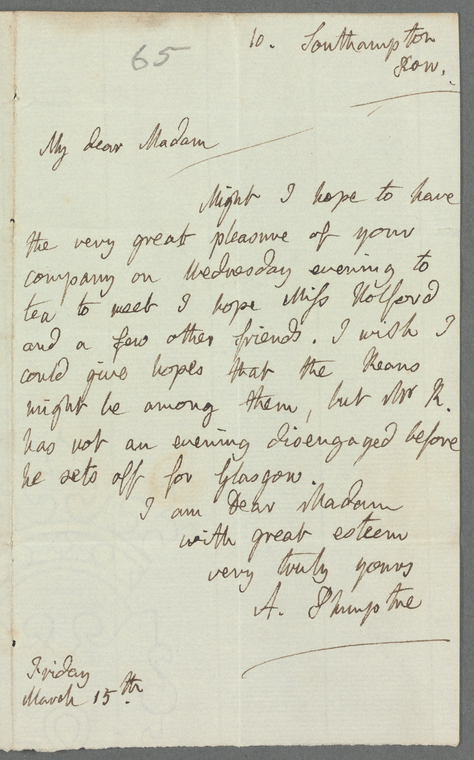 65
10. Southampton
Row.
My dear Madam
Might I hope to have
the very great pleasure of your
company on Wednesday evening to
tea to meet I hope Miss Holford
and a few other friends. I wish I
could give hopes that the Keans
might be among them, but Mr K.
has not an evening disengaged before
he sets off for Glasgow.
I am Dear Madam
with great esteem
very truly yours
A. Plumptre
Friday
March 15th